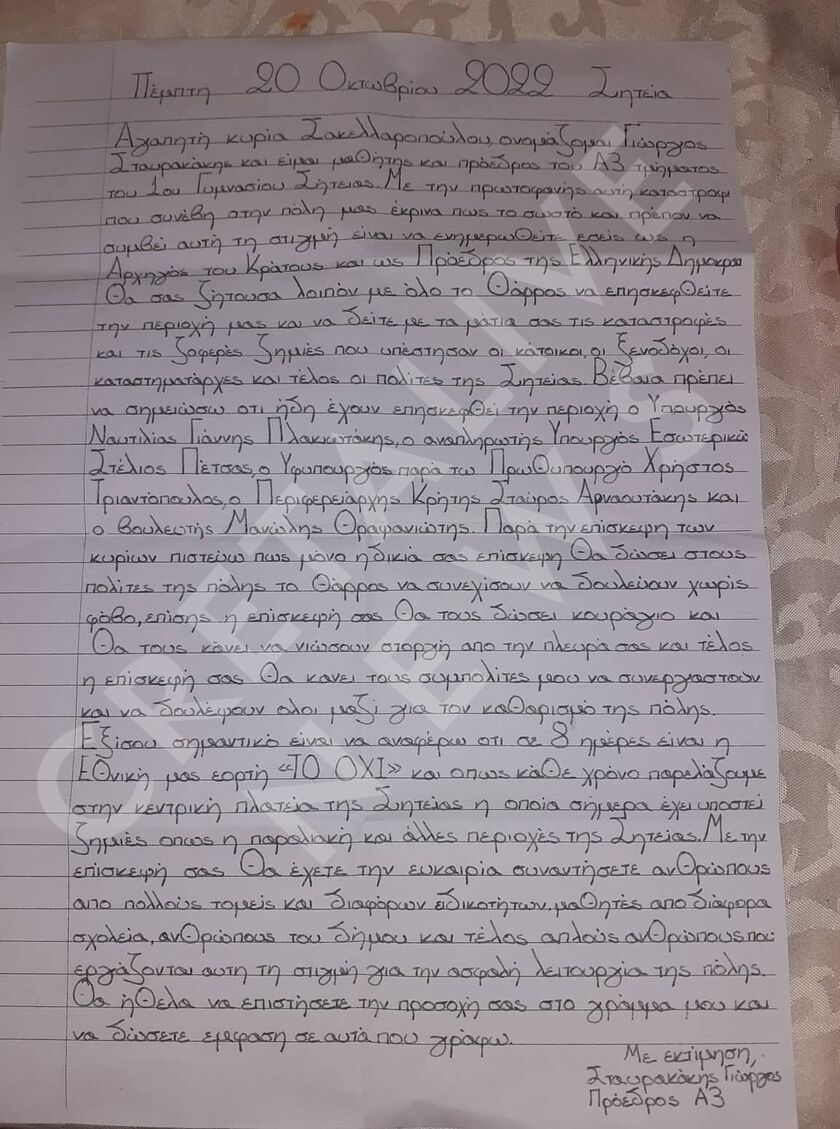 Πέμπτη 20 Οκτωβρίου 2022 Σητεία
Αγαπητή κυρία Σακελλαροπούλου, ονομάζομαι Γιώργος
Σταυρακάκης και είμαι μαθητής και πρόεδρος του Α3 τμήματος
του 1ου Γυμνασίου Σητείας. Με την πρωτοφανής αυτή καταστροφ
που συνέβη στην πόλη μας έκρινα πως το σωστό και πρέπον να
συμβεί αυτή τη στιγμή είναι να ενημερωθείτε εσείς ως η
Αρχηγός του Κράτους και ως Πρόεδρος της Ελληνικής Δημοκρα
Θα σας ζήτουσα λοιπόν με όλο το Θάρρος να επησκεφθείτε
την περιοχή μας και να δείτε με τα μάτια σας τις καταστροφές
και τις ζοφερές ζημιές που υπέστησαν οι κάτοικοι, οι ξενοδόχοι, οι
καταστηματάρχες και τέλος οι πολίτες της Σητείας. Βέβαια πρέπει
να σημειώσω οτι ήδη έχουν επησκεφθεί την περιοχή ο Υπουργός
Ναυτιλίας Γιάννης Πλακιωτάκης, ο αναπληρωτής Υπουργός Εσωτερικώ
Στέλιος Πέτσας, ο Υφυπουργός παρά τω Πρωθυπουργό Χρήστος
Τριαντόπουλος, ο Περιφερειάρχης Κρήτης Σταύρος Αρναουτάκης και
ο βουλευτής Μανώλης Θραψανιώτης. Παρά την επίσκεψη των
κυρίων πιστεύω πως μόνο η δικιά σας επίσκεψη Θα δώσει στους
πολίτες της πόλης το Θάρρος να συνεχίσουν να δουλεύουν χωρίς
φόβο, επίσης η επίσκεψή σας Θα τους δώσει κουράγιο και
Θα τους κάνει να νιώσουν στοργή απο την πλευρά σας και τέλος
η επίσκεψή σας Θα κανει τους συμπολίτες μου να συνεργαστούν
και να δουλέψουν ολοι μαζί για τον καθαρισμό της πόλης.
Εξίσου σημαντικό είναι να αναφέρω οτι σε 8 ημέρες είναι η
Εθνική μας εορτή «ΤΟ ΟΧΙ» και οπως κάθε χρόνο παρελάζουμε
στην κεντρική πλατεία της Σητείας η οποία σήμερα έχει υποστεί
ζημιές οπως η παραλιακή και άλλες περιοχές της Σητείας. Με την
επίσκεψή σας Θα έχετε την ευκαιρία συναντήσετε ανθρώπους
απο πολλούς τομείς και διαφόρων ειδικοτήτων, μαθητές απο διάφορα
σχολεία, ανθρώπους του δήμου και τέλος απλούς ανθρώπους που
εργάζονται αυτη τη στιγμή για την ασφαλή λειτουργία της πόλης.
Θα ήθελα να επιστήσετε την προσοχή σας στο γράμμα μου και
να δώσετε έμφαση σε αυτά που γράφω.
Με εκτίμηση,
Σταυρακάκης Γιώργος
Πρόεδρος Α3
CRETALIVE
NEWS